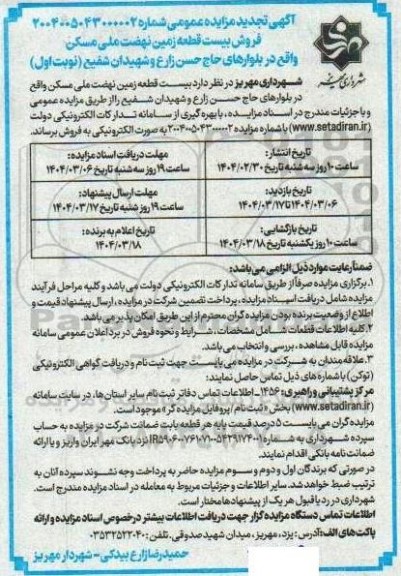 آگهی تجدید مزایده عمومی شماره ۲۰۰۴۰۰۵۰۴۳۰۰۰۰۰۲
فروش بیست قطعه زمین نهضت ملی مسکن
واقع در بلوارهای حاج حسن زارع و شهیدان شفیع (نوبت اول)
شهرداری مهریز
شهرداری مهریز در نظر دارد بیست قطعه زمین نهضت ملی مسکن واقع
در بلوارهای حاج حسن زارع و شهیدان شفیع را از طریق مزایده عمومی
و با جزئیات مندرج در اسناد مزایده، با بهره گیری از سامانه تدارکات الکترونیکی دولت
(www.setadiran.ir) با شماره مزایده ۲۰۰۴۰۰۵۰۴۳۰۰۰۰۰۲ به صورت الکترونیکی به فروش برساند.
تاریخ انتشار:
ساعت ۱۰ روز سه شنبه تاریخ ۱۴۰۴/۰۲/۳۰
مهلت دریافت اسناد مزایده:
ساعت ۱۹ روز سه شنبه تاریخ ۱۴۰۴/۰۳/۰۶
تاریخ بازدید:
۱۴۰۴/۰۳/۰۶ تا ۱۴۰۴/۰۳/۱۷
مهلت ارسال پیشنهاد:
ساعت ۱۹ روز شنبه تاریخ ۱۴۰۴/۰۳/۱۷
تاریخ بازگشایی:
ساعت ۱۰ روز یکشنبه تاریخ ۱۴۰۴/۰۳/۱۸
تاریخ اعلام به برنده:
۱۴۰۴/۰۳/۱۸
ضمناً رعایت موارد ذیل الزامی می باشد:
۱. برگزاری مزایده صرفاً از طریق سامانه تدارکات الکترونیکی دولت می باشد و کلیه مراحل فرآیند
مزایده شامل دریافت اسناد مزایده، پرداخت تضمین شرکت در مزایده، ارسال پیشنهاد قیمت و
اطلاع از وضعیت برنده بودن مزایده گران محترم از این طریق امکان پذیر می باشد.
۲. کلیه اطلاعات قطعات شامل مشخصات، شرایط و نحوه فروش در برد اعلان عمومی سامانه
مزایده قابل مشاهده، بررسی و انتخاب می باشد.
۳. علاقه مندان به شرکت در مزایده می بایست جهت ثبت نام و دریافت گواهی الکترونیکی
(توکن) با شماره های ذیل تماس حاصل نمایند:
مرکز پشتیبانی و راهبری: ۱۴۵۶ - اطلاعات تماس دفاتر ثبت نام سایر استان ها، در سایت سامانه
(www.setadiran.ir) بخش «ثبت نام / پروفایل مزایده گر» موجود است.
مزایده گران می بایست ۵ درصد قیمت پایه هر قطعه بابت ضمانت شرکت در مزایده به حساب
سپرده شهرداری به شماره نزد بانک مهر ایران واریز و یا ارائه
ضمانت نامه بانکی اقدام نمایند.
در صورتی که برندگان اول و دوم و سوم مزایده حاضر به پرداخت وجه نشوند سپرده آنان به
ترتیب ضبط خواهد شد. سایر اطلاعات و جزئیات مربوط به معامله در اسناد مزایده مندرج است.
شهرداری در رد یا قبول هر یک از پیشنهادها مختار است.
اطلاعات تماس دستگاه مزایده گزار جهت دریافت اطلاعات بیشتر در خصوص اسناد مزایده و ارائه
پاکت های الف: آدرس: یزد، مهریز، میدان شهید صدوقی. تلفن: ۰۳۵۳۲۵۲۲۰۴۰
حمیدرضا زارع بیدکی - شهردار مهریز